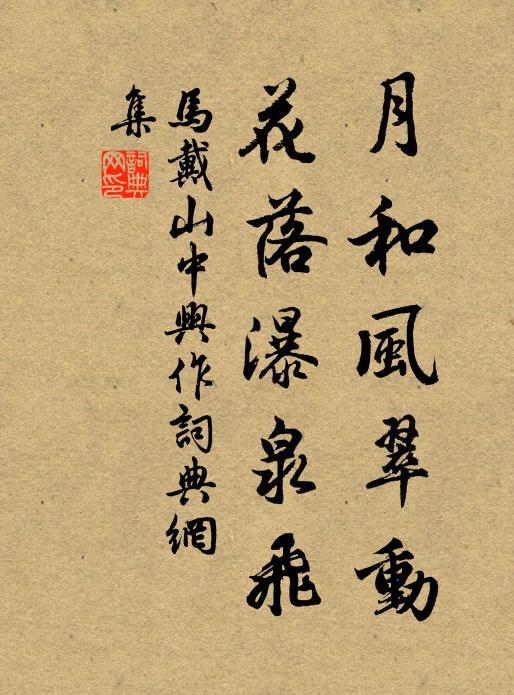 月和風翠動
花落瀑泉飛
馬戴山中興作詞典網
集
詞典
网印